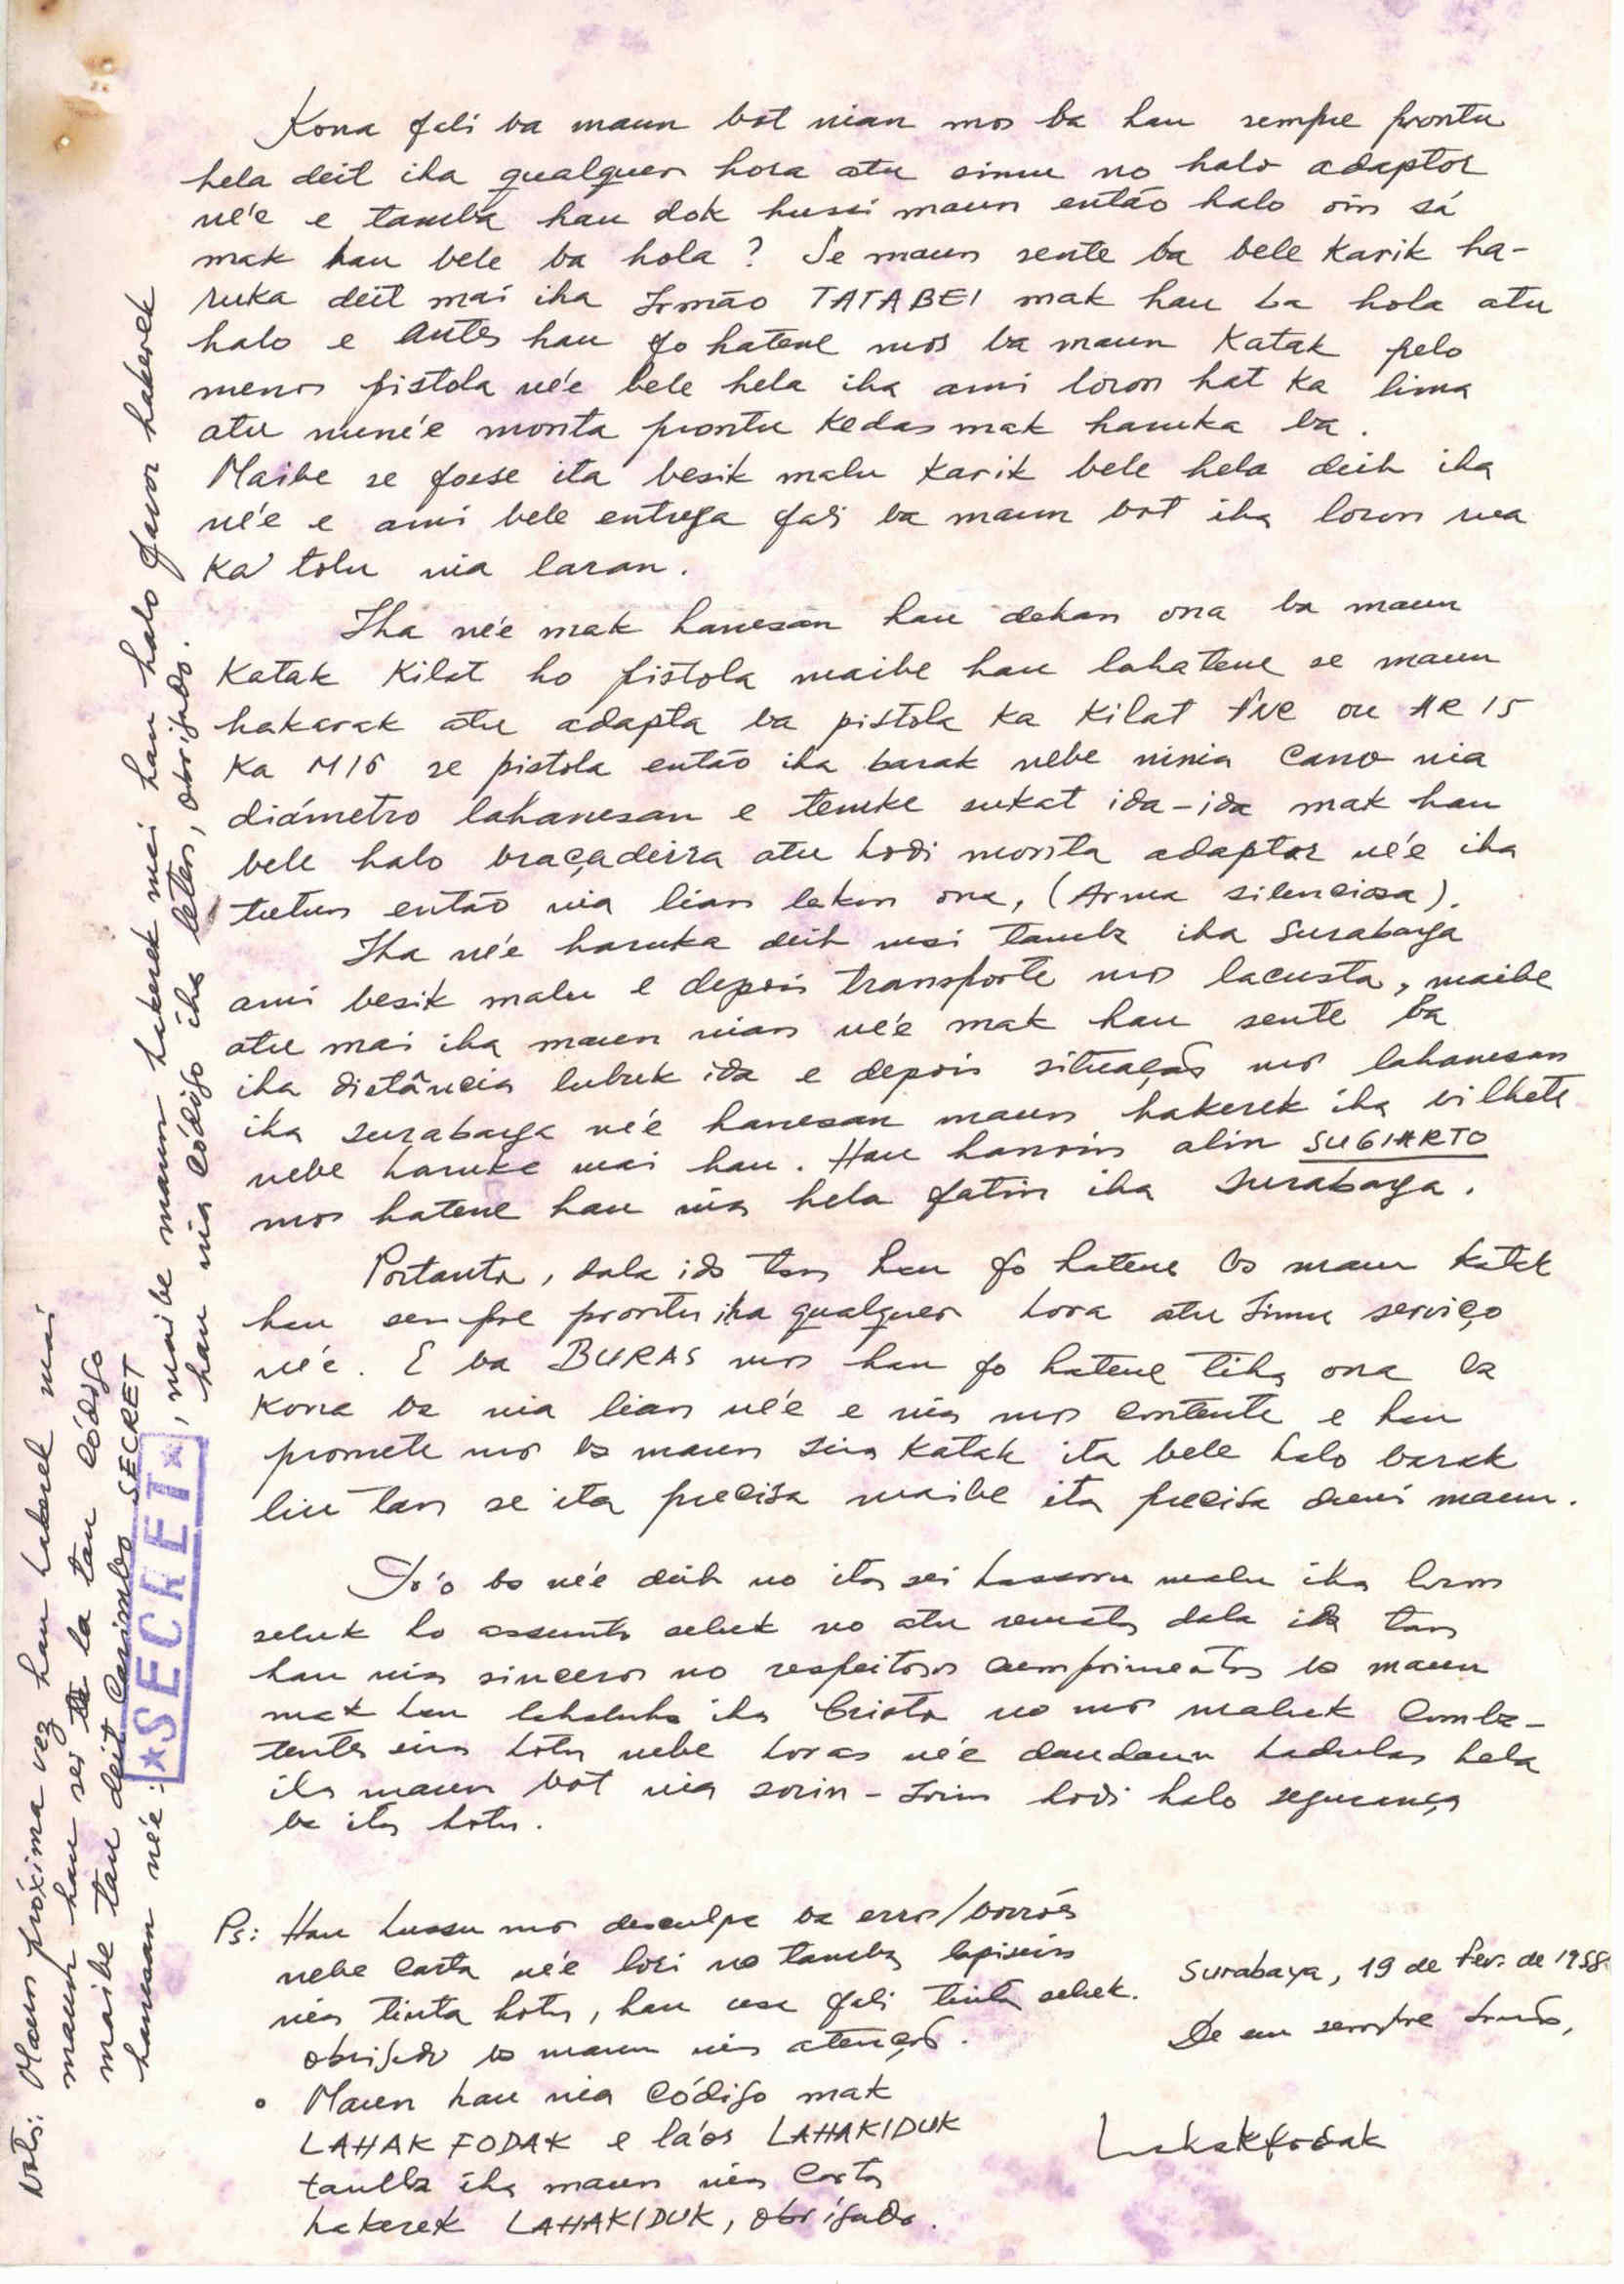 Kona fali ba maun bot nian mos ba hau sempre prontu
hela deit iha qualquer hora atu simu no halo adaptor
né'e e tamba hau dok hussi maun então halo oin sá
mak hau bele ba hola? Se maun sente ba bele karik ha-
ruka deit mai iha Irmão TATABEI mak hau ba hola atu
halo e antes hau fo hatene mos ba maun katak pelo
menos pistola né'e bele hela iha ami loron hat ka lima
atu nuné'e monta prontu kedas mak haruka ba.
Maibe se fosse ita besik malu karik bele hela deih iha
né'e e ami bele entrega fali ba maun bot iha loron rua
ka tolu nia laran.
Iha né'e mak hanesan hau dehan ona ba maun
katak kilat ho pistola maibe hau lahatene se maun
hakarak atu adapta ba pistola ka kilat FNC ou AR 15
ka M16 se pistola então iha barak nebe ninia cano nia
diámetro lahanesan e tenke sukat ida-ida mak hau
bele halo braçadeira atu hodi monta adaptor né'e iha
tutun então nia lian lakon ona, (Arma silenciosa).
Iha né'e haruka deih mai tamba iha Surabaya
ami besik malu e depois transporte mos lacusta, maibe
atu mai iha maun nian né'e mak hau sente ba
iha distância lubuk ida e depois situação mos lahanesan
iha surabaya né'e hanesan maun hakerek iha bilhete
nebe haruka mai hau. Hau hanoin alin SUGIARTO
mos hatene hau nia hela fatin iha Surabaya.
Portanto, dala ida tan hau fo hatene ba maun katak
hau sempre prontu iha qualquer hora atu simu serviço
né'e. E ba BURAS mos hau fo hatene tiha ona ba
kona ba nia lian né'e e nia mos contente e hau
promete mos ba maun sira katak ita bele halo barak
liu tan se ita precisa maibe ita precisa duni maun.
To'o ba né'e deih no ita sei hassoru malu iha loron
seluk ho assunto seluk no atu remata dala ida tan
hau nia sinceros no respeitosos cumprimentos ba maun
mak hau lahaluha iha Cristo no mos maluk Comba-
tentes sira hotu nebe horas né'e daudaun hadulas hela
iha maun bot nia sorin-sorin hodi halo segurança
ba ita hotu.
Ps: Hau hussu mos desculpa ba erros/borrões
nebe carta né'e lori no tamba lapiseira
nia tinta hotu, hau usa fali tinta seluk.
obrigado ba maun nia atenção.
• Maun hau nia código mak
LAHAK FODAK e lá'os LAHAKIDUK
tamba iha maun nia carta
hakerek LAHAKIDUK, obrigado.
Surabaya, 19 de Fev. de 1998.
De um sempre Irmão,
Lahakfodak
Nota: Maun próxima vez hau hakerek mai
maun hau sei la tau código
maibe tau deit Carimbo SECRET
hanesan né'e: ★SECRET★, maibe maun hakerek mai hau halo favor hakerek
hau nia código iha leten, obrigado.